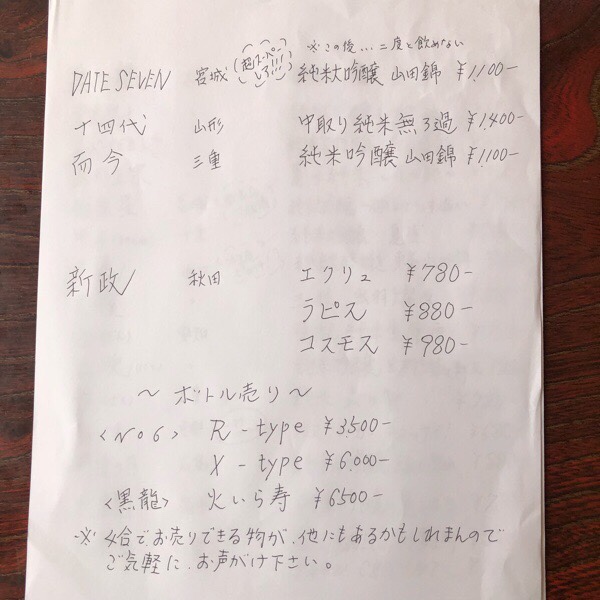 ※この後...二度と飲めない
DATE SEVEN 宮城 超スーパーレア!!! 純米大吟醸 山田錦 ¥1,100-
十四代 山形 中取り純米無ろ過 ¥1,400-
而今 三重 純米吟醸 山田錦 ¥1,100-
新政 秋田 エクリュ ¥780-
ラピス ¥880-
コスモス ¥980-
～ボトル売り～
<No6> R-type ¥3500-
X-type ¥6,000-
<黒龍> 火いら寿 ¥6500-
※ 4合でお売りできる物が、他にもあるかもしれまんので
ご気軽に、お声がけ下さい。